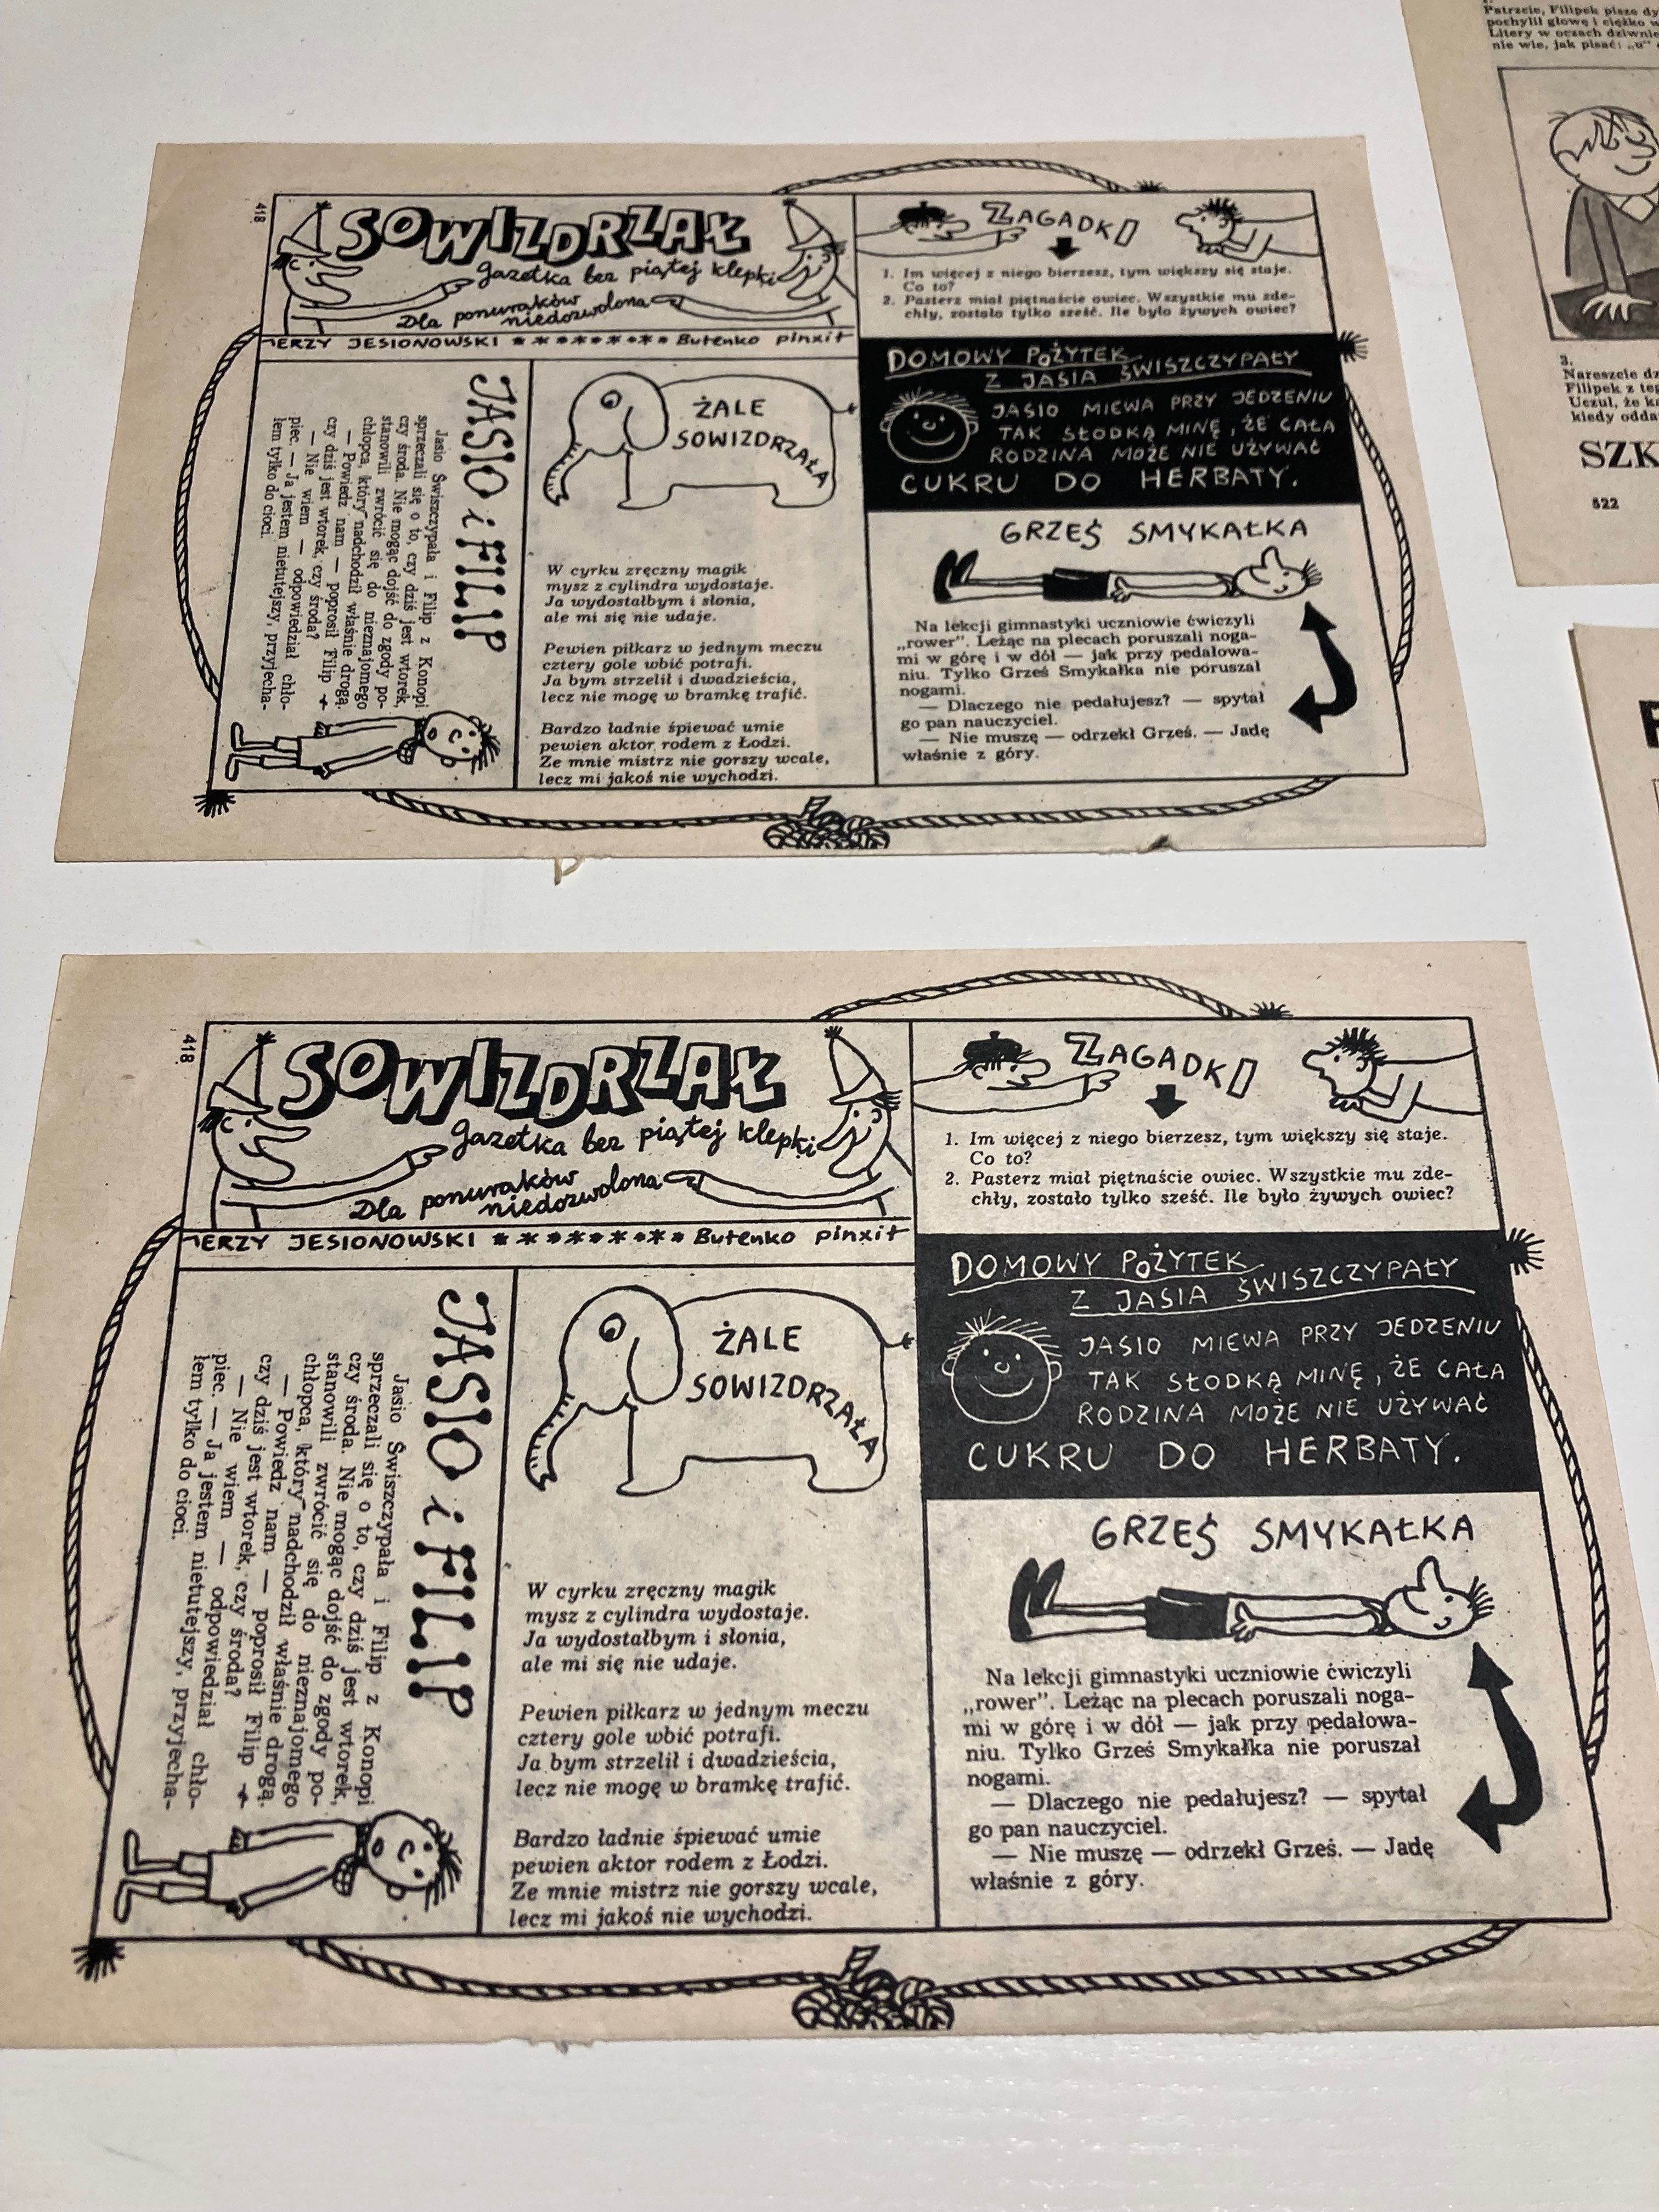 418
SOWIZDRZAŁ
Gazetka bez piątej klepki
Dla ponuraków
niedozwolona
JERZY JESIONOWSKI ********* Butenko pinxit
JASIO i FILIP
Jasio Świszczypała i Filip z Konopi
sprzeczali się o to, czy dziś jest wtorek,
czy środa. Nie mogąc dojść do zgody po-
stanowili zwrócić się do nieznajomego
chłopca, który nadchodził właśnie drogą.
— Powiedz nam — poprosił Filip —
czy dziś jest wtorek, czy środa?
— Nie wiem — odpowiedział chło-
piec. — Ja jestem nietutejszy, przyjecha-
łem tylko do cioci.
ŻALE
SOWIZDRZAŁA
W cyrku zręczny magik
mysz z cylindra wydostaje.
Ja wydostałbym i słonia,
ale mi się nie udaje.
Pewien piłkarz w jednym meczu
cztery gole wbić potrafi.
Ja bym strzelił i dwadzieścia,
lecz nie mogę w bramkę trafić.
Bardzo ładnie śpiewać umie
pewien aktor rodem z Łodzi.
Ze mnie mistrz nie gorszy wcale,
lecz mi jakoś nie wychodzi.
ZAGADKI
1. Im więcej z niego bierzesz, tym większy się staje.
Co to?
2. Pasterz miał piętnaście owiec. Wszystkie mu zde-
chły, zostało tylko sześć. Ile było żywych owiec?
DOMOWY POŻYTEK
Z JASIA ŚWISZCZYPAŁY
JASIO MIEWA PRZY JEDZENIU
TAK SŁODKĄ MINĘ, ŻE CAŁA
RODZINA MOŻE NIE UŻYWAĆ
CUKRU DO HERBATY.
GRZEŚ SMYKAŁKA
Na lekcji gimnastyki uczniowie ćwiczyli
„rower”. Leżąc na plecach poruszali noga-
mi w górę i w dół — jak przy pedałowa-
niu. Tylko Grześ Smykałka nie poruszał
nogami.
— Dlaczego nie pedałujesz? — spytał
go pan nauczyciel.
— Nie muszę — odrzekł Grześ. — Jadę
właśnie z góry.
Patrzcie, Filipek pisze
pochylił głowę i ciężko
Litery w oczach dziwnie
nie wie, jak pisać: „u”
3.
Nareszcie
Filipek z
Uczuł, że
kiedy
SZK
522
418
SOWIZDRZAŁ
Gazetka bez piątej klepki
Dla ponuraków
niedozwolona
JERZY JESIONOWSKI ********* Butenko pinxit
JASIO i FILIP
Jasio Świszczypała i Filip z Konopi
sprzeczali się o to, czy dziś jest wtorek,
czy środa. Nie mogąc dojść do zgody po-
stanowili zwrócić się do nieznajomego
chłopca, który nadchodził właśnie drogą.
— Powiedz nam — poprosił Filip —
czy dziś jest wtorek, czy środa?
— Nie wiem — odpowiedział chło-
piec. — Ja jestem nietutejszy, przyjecha-
łem tylko do cioci.
ŻALE
SOWIZDRZAŁA
W cyrku zręczny magik
mysz z cylindra wydostaje.
Ja wydostałbym i słonia,
ale mi się nie udaje.
Pewien piłkarz w jednym meczu
cztery gole wbić potrafi.
Ja bym strzelił i dwadzieścia,
lecz nie mogę w bramkę trafić.
Bardzo ładnie śpiewać umie
pewien aktor rodem z Łodzi.
Ze mnie mistrz nie gorszy wcale,
lecz mi jakoś nie wychodzi.
ZAGADKI
1. Im więcej z niego bierzesz, tym większy się staje.
Co to?
2. Pasterz miał piętnaście owiec. Wszystkie mu zde-
chły, zostało tylko sześć. Ile było żywych owiec?
DOMOWY POŻYTEK
Z JASIA ŚWISZCZYPAŁY
JASIO MIEWA PRZY JEDZENIU
TAK SŁODKĄ MINĘ, ŻE CAŁA
RODZINA MOŻE NIE UŻYWAĆ
CUKRU DO HERBATY.
GRZEŚ SMYKAŁKA
Na lekcji gimnastyki uczniowie ćwiczyli
„rower”. Leżąc na plecach poruszali noga-
mi w górę i w dół — jak przy pedałowa-
niu. Tylko Grześ Smykałka nie poruszał
nogami.
— Dlaczego nie pedałujesz? — spytał
go pan nauczyciel.
— Nie muszę — odrzekł Grześ. — Jadę
właśnie z góry.